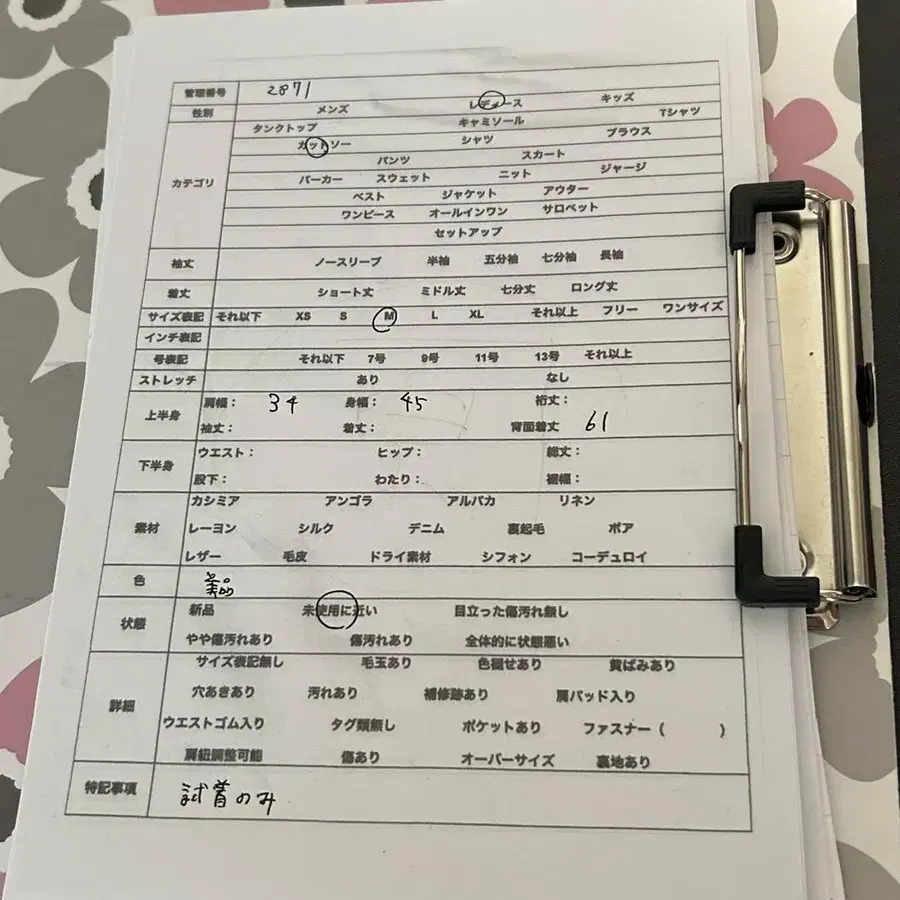 管理番号 2871
性別 メンズ レディース キッズ
タンクトップ キャミソール Tシャツ
カットソー シャツ ブラウス
パンツ スカート
カテゴリ パーカー スウェット ニット ジャージ
ベスト ジャケット アウター
ワンピース オールインワン サロペット
セットアップ
袖丈 ノースリーブ 半袖 五分袖 七分袖 長袖
着丈 ショート丈 ミドル丈 七分丈 ロング丈
サイズ表記 それ以下 XS S M L XL それ以上 フリー ワンサイズ
インチ表記
号表記 それ以下 7号 9号 11号 13号 それ以上
ストレッチ あり なし
上半身 肩幅: 34 身幅: 45 裄丈:
袖丈: 着丈: 背面着丈 61
下半身 ウエスト: ヒップ: 総丈:
股下: わたり: 裾幅:
カシミア アンゴラ アルパカ リネン
素材 レーヨン シルク デニム 裏起毛 ボア
レザー 毛皮 ドライ素材 シフォン コーデュロイ
色 美品
状態 新品 未使用に近い 目立った傷汚れ無し
やや傷汚れあり 傷汚れあり 全体的に状態悪い
サイズ表記無し 毛玉あり 色褪せあり 黄ばみあり
詳細 穴あきあり 汚れあり 補修跡あり 肩パッド入り
ウエストゴム入り タグ類無し ポケットあり ファスナー( )
肩紐調整可能 傷あり オーバーサイズ 裏地あり
特記事項 試着のみ